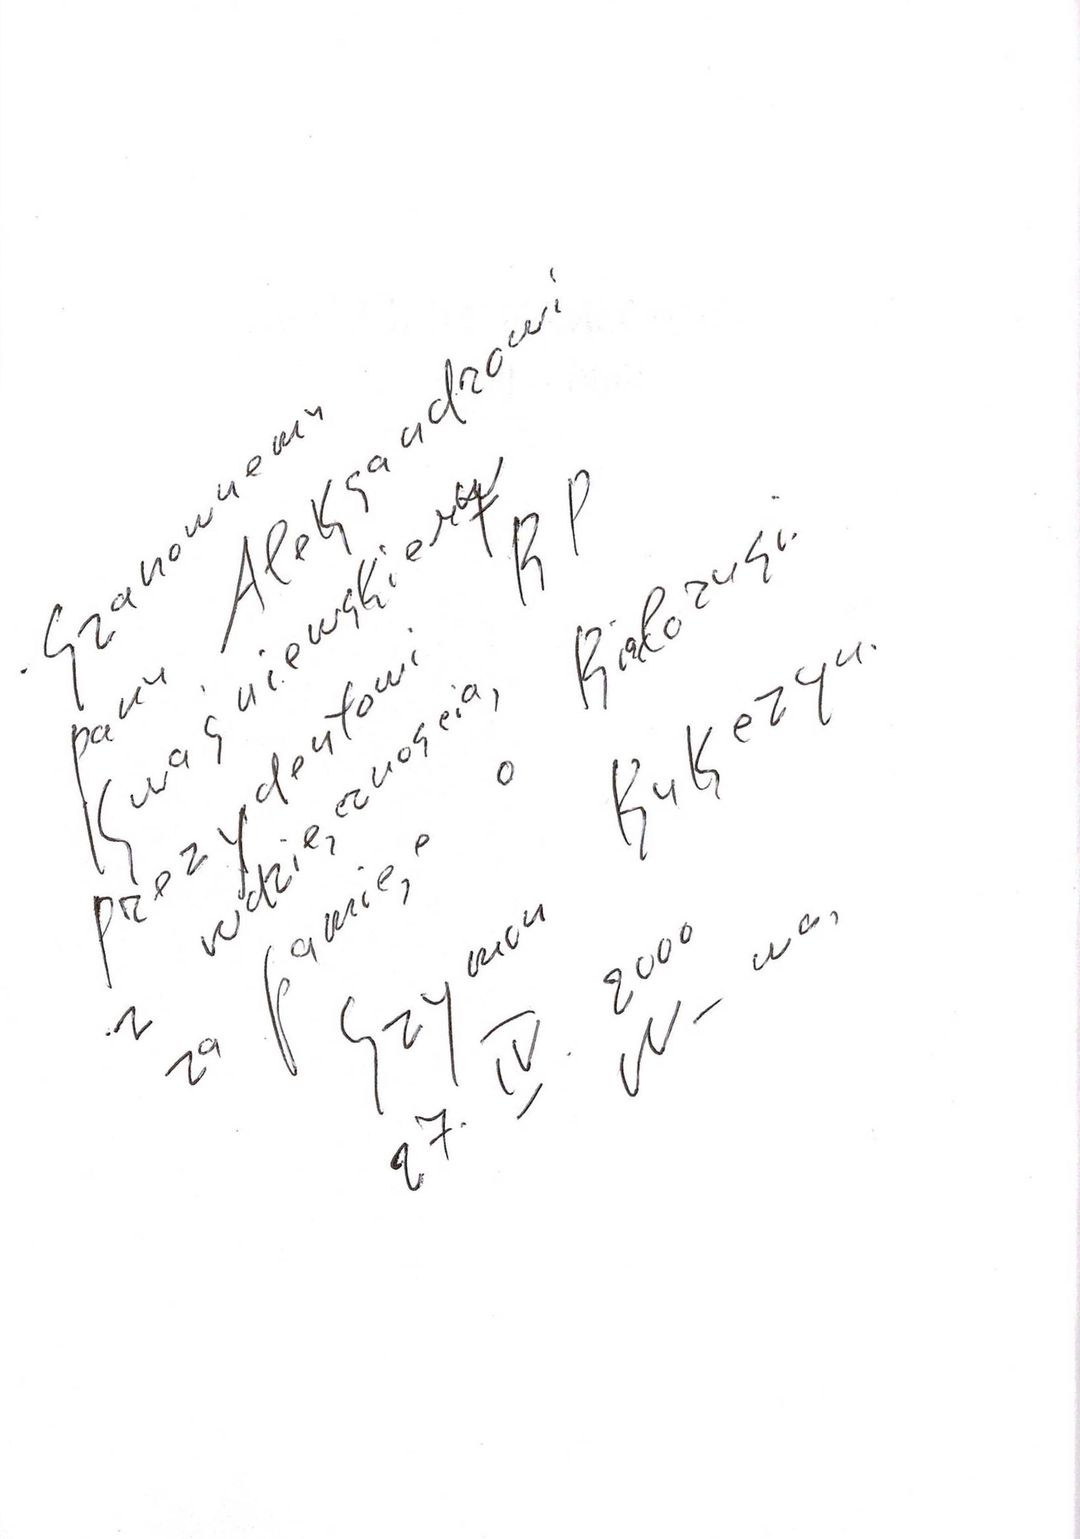 Szanownemu
panu Aleksandrowi
Kwaśniewskiemu
prezydentowi RP
z wdzięcznoscią,
za pamięc o Białorusi.
Szymon Kukczyn.
27. IV. 2000
W-wa,